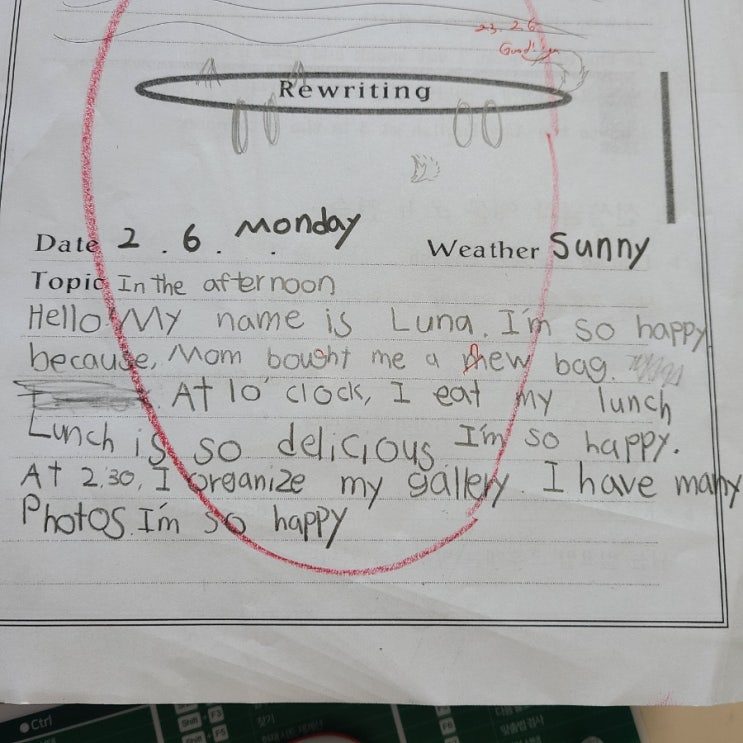 23. 2.6
Good!
Rewriting
Date 2 . 6 . Monday Weather Sunny
Topic In the afternoon
Hello! My name is Luna. I'm so happy
because, Mom bought me a new bag.
At 10' clock, I eat my lunch
Lunch is so delicious I'm so happy.
At 2,30, I organize my gallery. I have many
Photos. I'm so happy
Ctrl
Shift + F3
찾기
Shift + F5
F6
F8
맞춤법 검사